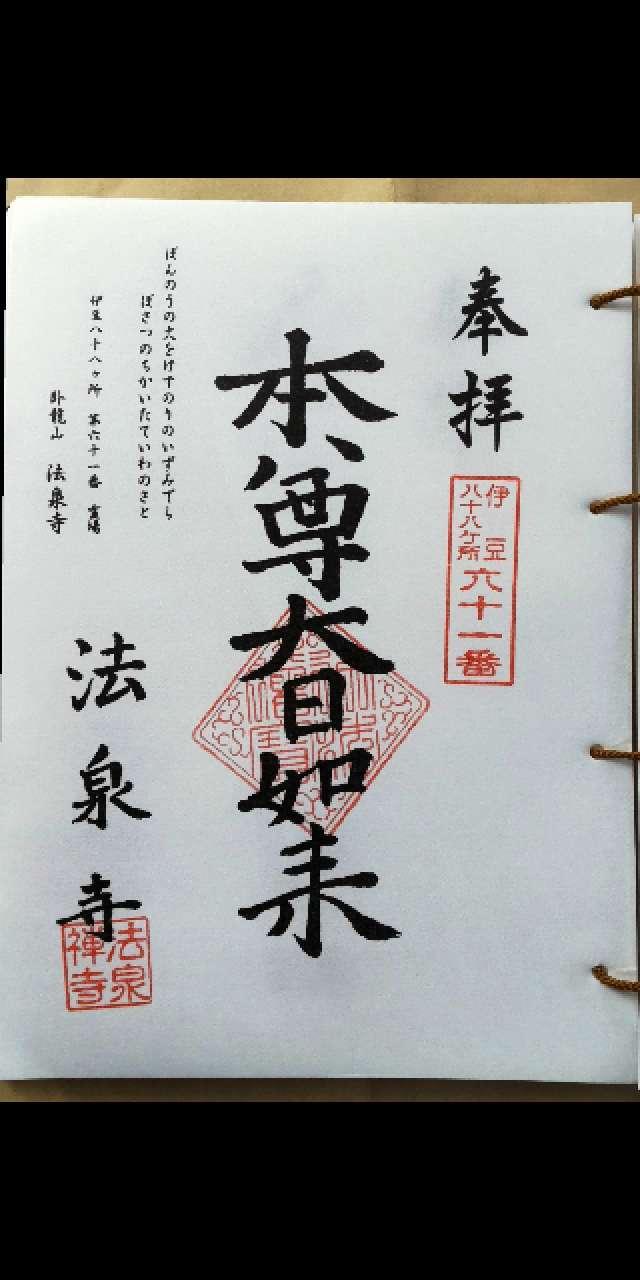 奉拝
伊豆
八十八ケ所
六十一番
本尊大日如来
ぼんのうの火をけすのりのいずみでら
ぼさつのちかいたていわのさと
伊豆八十八ヶ所 第六十一番 霊場
臥龍山 法泉寺
法泉寺
法泉
禅寺